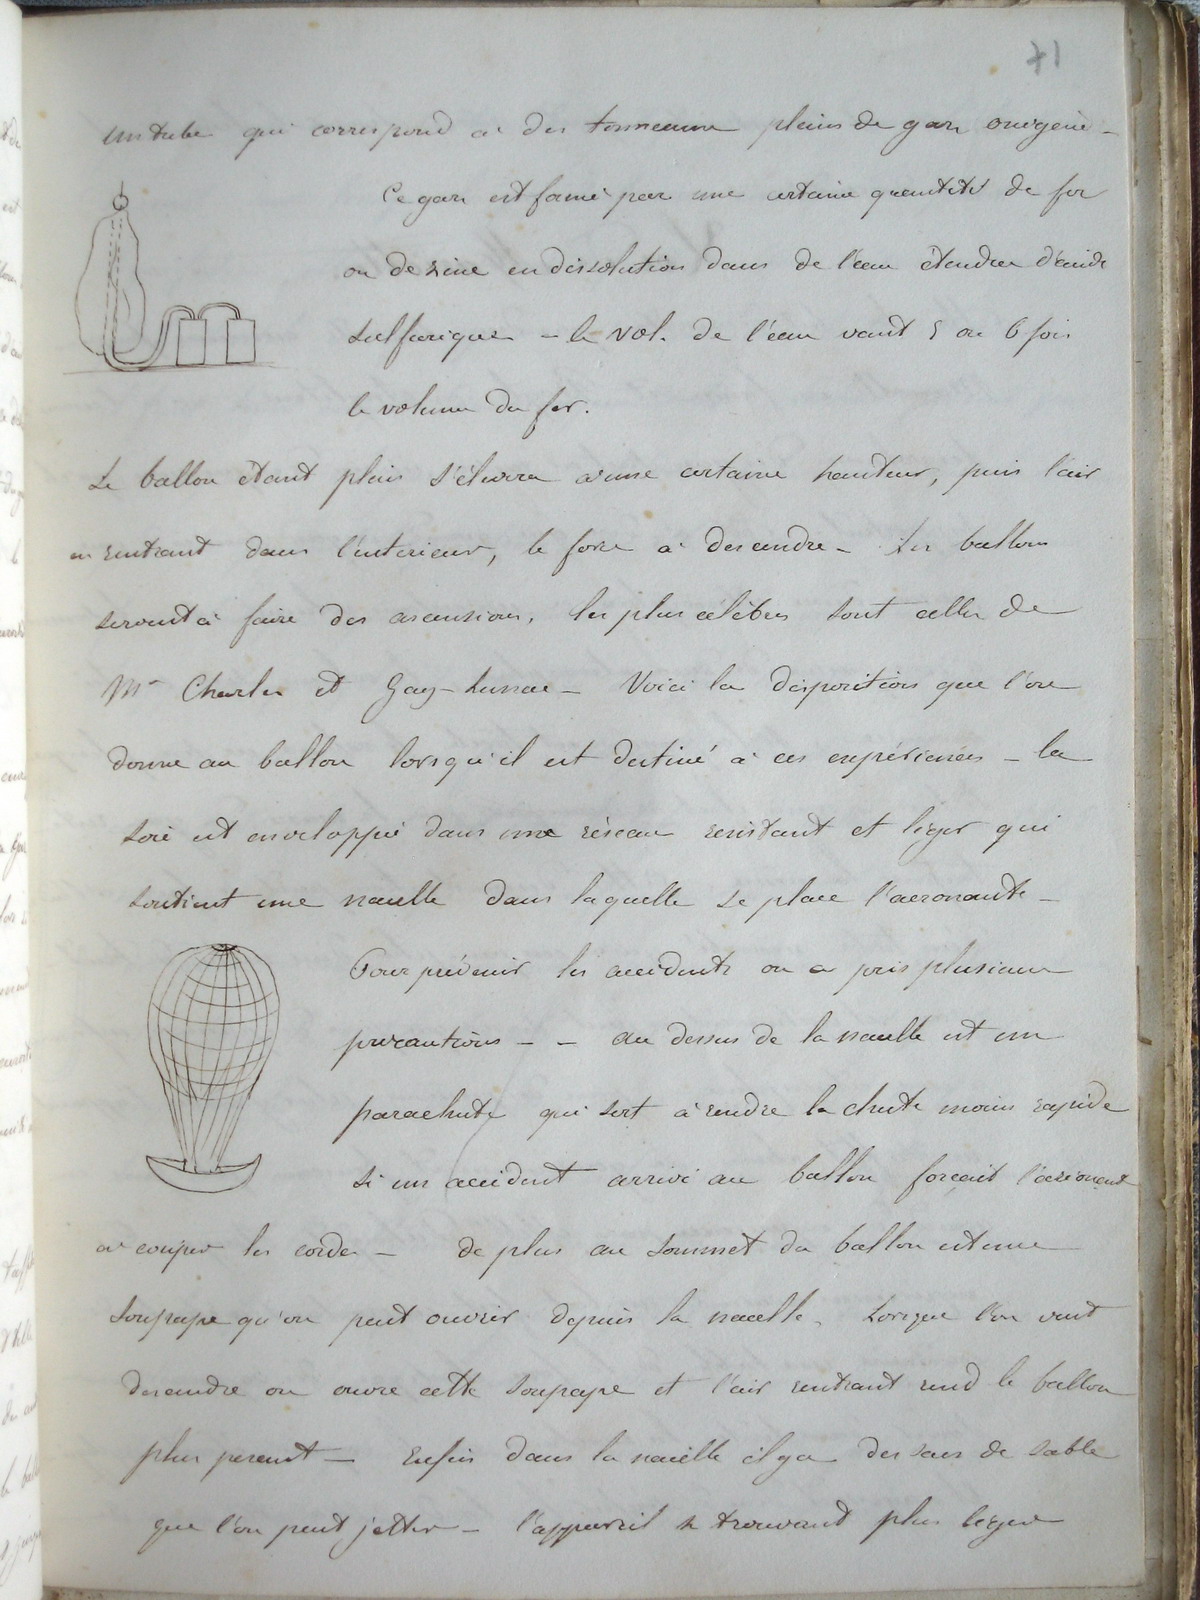 71
un tube qui correspond à des tonneaux pleins de gaz oxigène -
Ce gaz est formé par une certaine quantité de fer
ou de zinc en dissolution dans de l'eau étendue d'acide
sulfurique - le vol. de l'eau vaut 5 ou 6 fois
le volume du fer.
Le ballon étant plein s'élevera à une certaine hauteur, puis l'air
en rentrant dans l'interieur, le force à descendre - Les ballons
servent à faire des ascensions, les plus célèbres sont celles de
Mr Charles et Gay-Lussac - Voici la disposition que l'on
donne au ballon lorsqu'il est destiné à ces expériences - la
soie est enveloppée dans une réseau resistant et léger qui
soutient une nacelle dans laquelle se place l'aeronaute -
Pour prévenir les accidents on a pris plusieurs
précautions - - au dessus de la nacelle est un
parachute qui sert à rendre la chute moins rapide
si un accident arrivé au ballon forçait l'aéronaut
à couper les cordes - de plus au sommet du ballon est une
soupape qu'on peut ouvrir depuis la nacelle. Lorsque l'on veut
descendre on ouvre cette soupape et l'air rentrant rend le ballon
plus pesant - Enfin dans la nacelle il y a des sacs de sable
que l'on peut jetter - l'appareil se trouvant plus léger